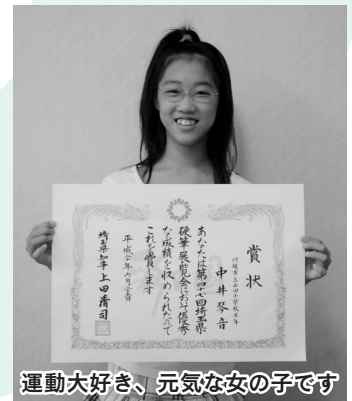 賞状
川越市立山田小学校五年
中井琴音
あなたは第四十七回埼玉県
硬筆展覧会において優秀
な成績を収められたので
これを賞します
埼玉県知事 上田清司
運動大好き、元気な女の子です